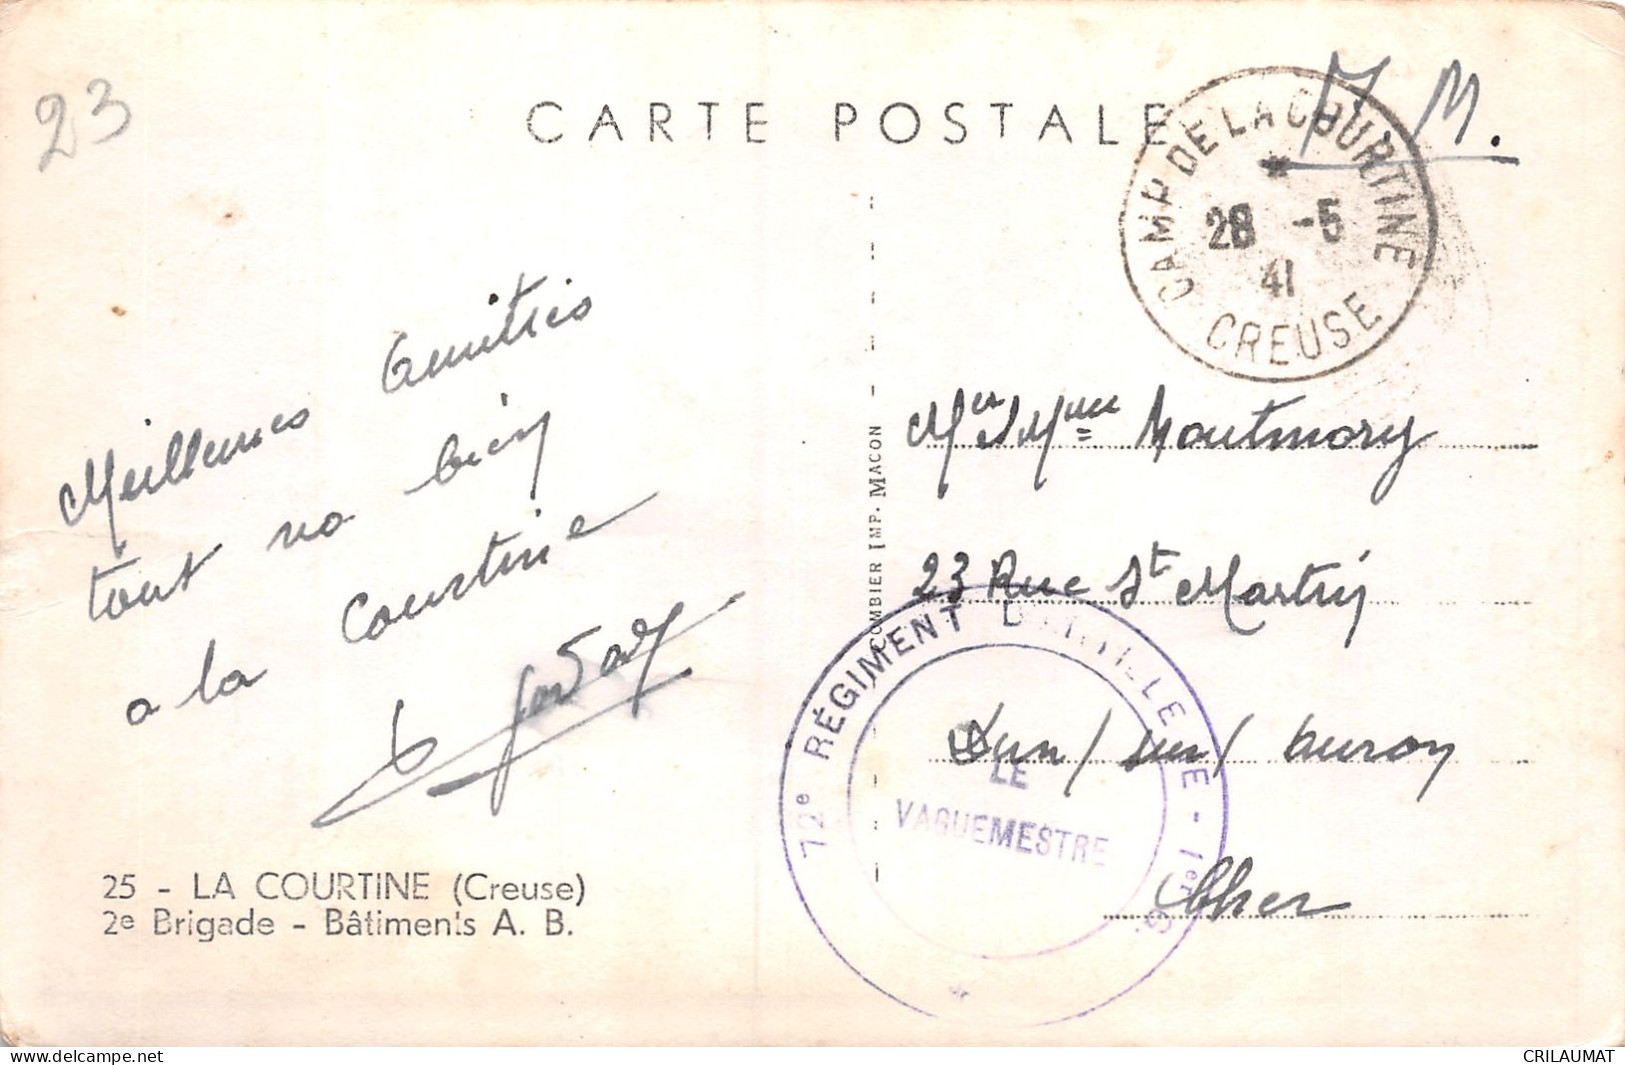 23
CARTE POSTALE
F M.
CAMP DE LA COURTINE
28 -5
41
CREUSE
Meilleures Amitiés
tout va bien
a la Courtine
Mer & Mme Montmory
23 Rue St Martin
Dun / sur / Auron
Cher
72e RÉGIMENT D'ARTILLERIE - 1er G.
LE
VAGUEMESTRE
COMBIER IMP. MACON
25 - LA COURTINE (Creuse)
2e Brigade - Bâtiments A. B.
CRILAUMAT